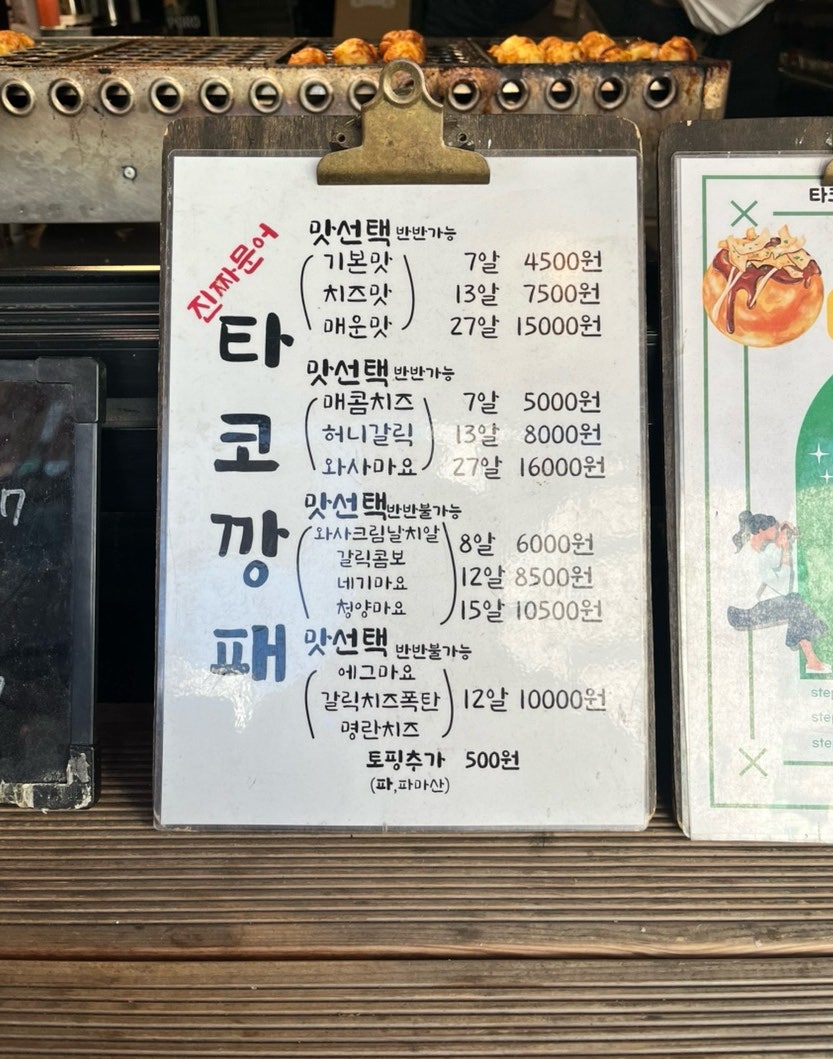 진짜문어
타
코
깡
패
맛선택 반반가능
기본맛 7알 4500원
치즈맛 13알 7500원
매운맛 27알 15000원
맛선택 반반가능
매콤치즈 7알 5000원
허니갈릭 13알 8000원
와사마요 27알 16000원
맛선택 반반불가능
와사크림날치알 8알 6000원
갈릭콤보
네기마요 12알 8500원
청양마요 15알 10500원
맛선택 반반불가능
에그마요
갈릭치즈폭탄 12알 10000원
명란치즈
토핑추가 500원
(파,파마산)